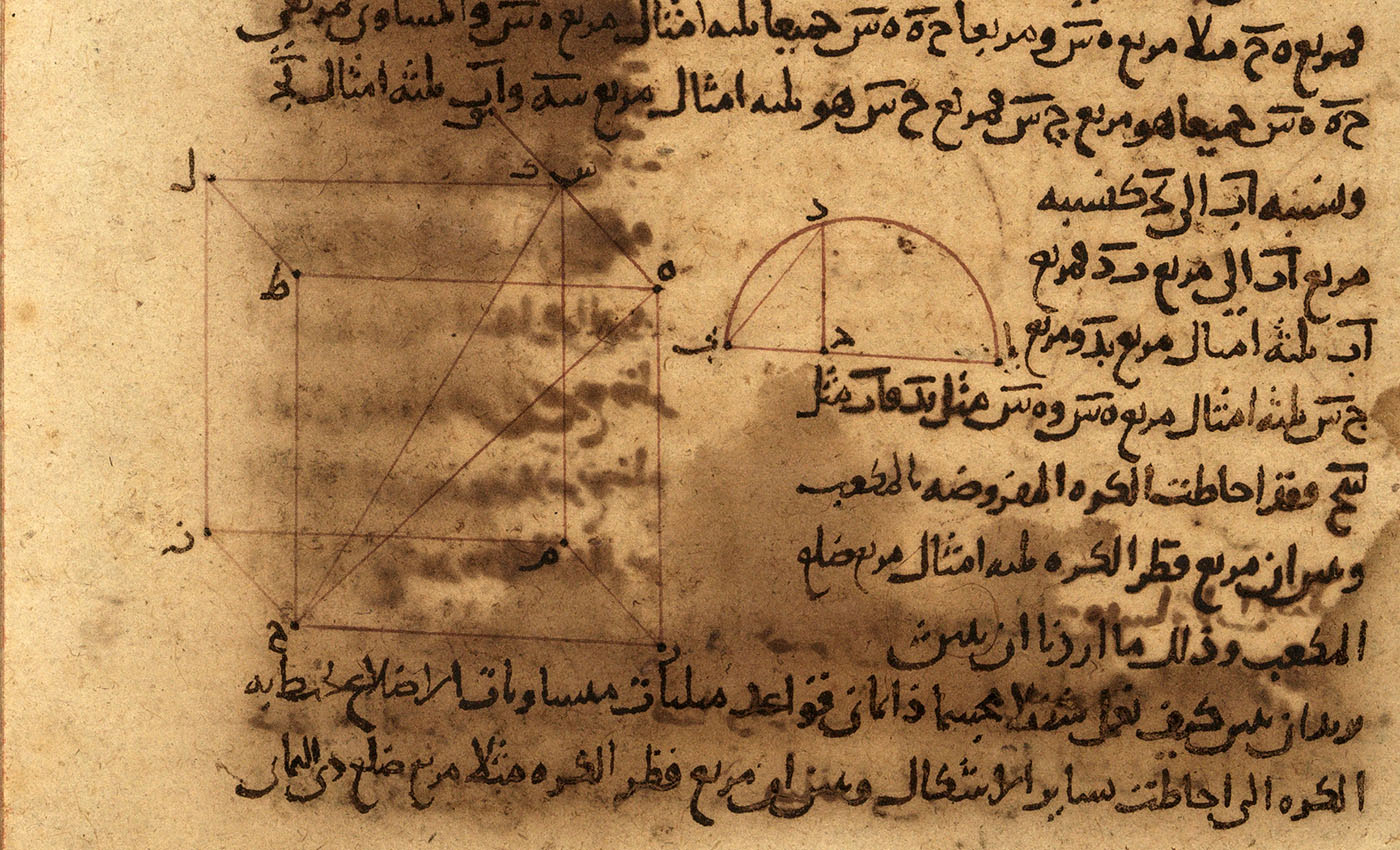 فمربع ه ح مثلا مربع ه س ومربعا ح ه ه س جميعا ثلثه امثال مربع ه س والمساوى لمربعى
ح ه ه س جميعا هو مربع ح س فمربع ح س هو ثلثه امثال مربع س ه و اب ثلثه امثال
ونسبه اب الى كنسبه
مربع اب الى مربع ب د فمربع
اب ثلثه امثال مربع بد ومربع
ح س ثلثه امثال مربع ه س و ه س مثل بد فاب مثل
س ح فقد احاطت الكره المفروضه بالمكعب
وتبين ان مربع قطر الكره ثلثه امثال مربع ضلع
المكعب وذلك ما اردنا ان نبين
نريد ان نبين كيف نعمل شكلا مجسما ذا ثمانى قواعد مثلثات متساويات الاضلاع تحيط به
الكره التى احاطت بساير الاشكال ونبين ان مربع قطر الكره مثلا مربع ضلع ذى الثمانى
ل
ك
س
ط
ه
ن
م
ح
ز
د
ب
ج
ا